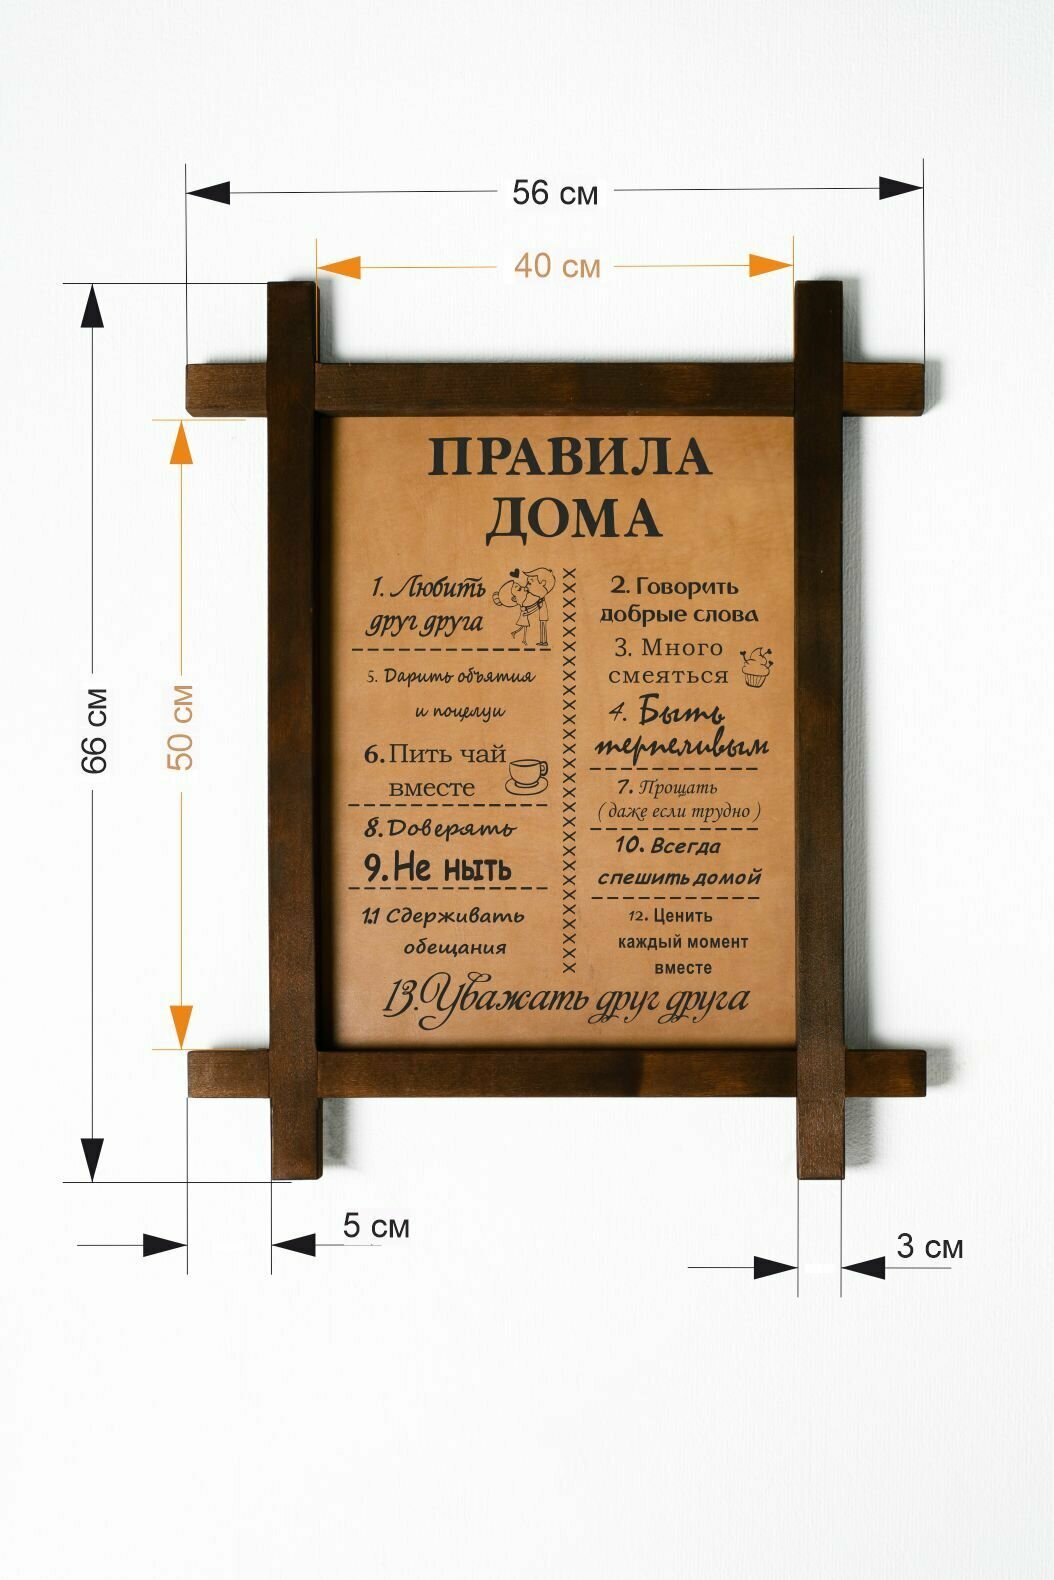 56 см
40 см
66 см
50 см
ПРАВИЛА
ДОМА
1. Любить
друг друга
2. Говорить
добрые слова
3. Много
смеяться
4. Быть
терпеливым
5. Дарить объятия
и поцелуи
6. Пить чай
вместе
7. Прощать
( даже если трудно )
8. Доверять
9. Не ныть
10. Всегда
спешить домой
11 Сдерживать
обещания
12. Ценить
каждый момент
вместе
13. Уважать друг друга
5 см
3 см